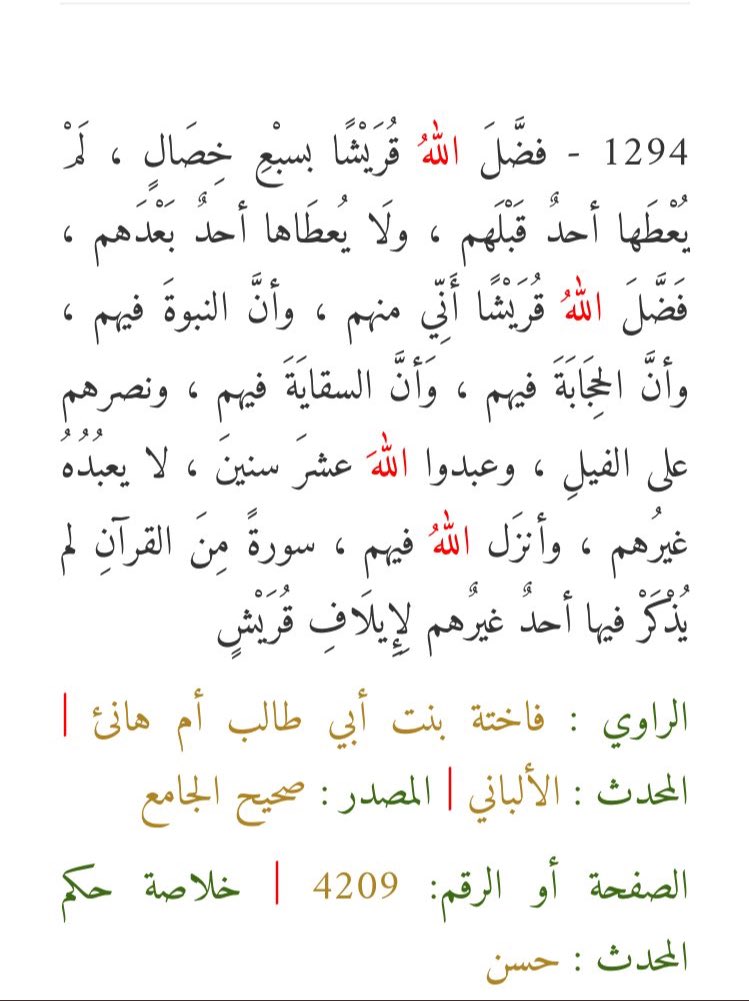 1294 - فضَّلَ اللهُ قُرَيْشًا بسبْعِ خِصَالٍ ، لَمْ
يُعْطَها أحدٌ قَبْلَهم ، ولَا يُعطَاها أحدٌ بَعْدَهم ،
فَضَّلَ اللهُ قُرَيْشًا أَنِّي منهم ، وأنَّ النبوةَ فيهم ،
وأنَّ الحِجَابَةَ فيهم ، وَأنَّ السقايَةَ فيهم ، ونصرهم
على الفيلِ ، وعبدوا اللهَ عشرَ سنينَ ، لا يعبُدُهُ
غيرُهم ، وأنزَل اللهُ فيهم ، سورةً مِنَ القرآنِ لم
يُذْكَرْ فيها أحدٌ غيرُهم لِإِيلَافِ قُرَيْشٍ
الراوي : فاختة بنت أبي طالب أم هانئ |
المحدث : الألباني | المصدر : صحيح الجامع
الصفحة أو الرقم: 4209 | خلاصة حكم
المحدث : حسن